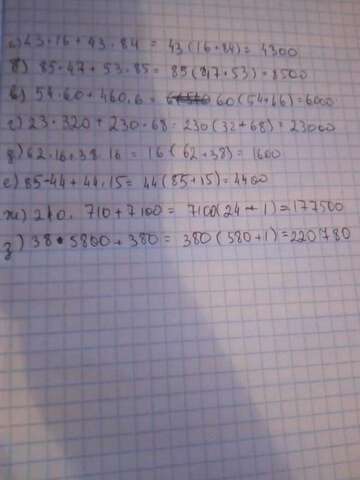 а) 43·16 + 43·84 = 43(16+84)=4300
б) 85·47 + 53·85 = 85(47+53)=8500
в) 54·60 + 460·6 = 60(54+46)=6000
г) 23·320 + 230·68 = 230(32+68)=23000
д) 62·16+38·16 = 16(62+38)=1600
е) 85·44 + 44·15 = 44(85+15)=4400
ж) 240·710+7100 = 7100(24+1)=177500
з) 38·5800+380 = 380(580+1)=220780